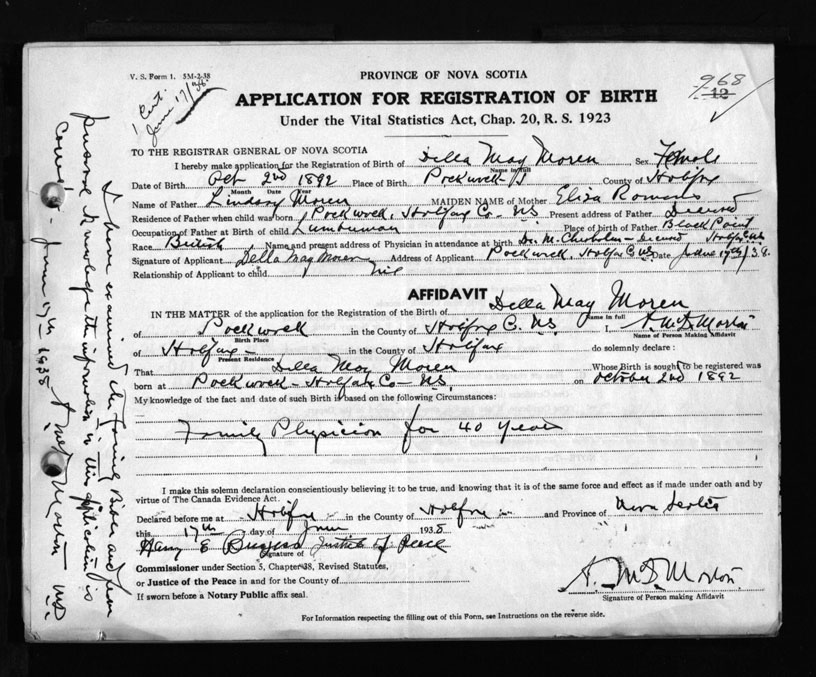 V. S. Form 1. 5M-2-38
PROVINCE OF NOVA SCOTIA
968
12
1 Cert.
June 17/38
APPLICATION FOR REGISTRATION OF BIRTH
Under the Vital Statistics Act, Chap. 20, R. S. 1923
TO THE REGISTRAR GENERAL OF NOVA SCOTIA
I hereby make application for the Registration of Birth of Della May Moren Sex Female
Name in full
Date of Birth Oct 2nd 1892 Place of Birth County of Halifax
Month Date Year
Name of Father Lindsay Moren MAIDEN NAME of Mother Eliza
Residence of Father when child was born Halifax Co. NS Present address of Father Deceased
Occupation of Father at Birth of child Lumberman Place of birth of Father Black Point
Race British Name and present address of Physician in attendance at birth Dr. M. Chisholm - deceased Halifax Co NS
Signature of Applicant Della May Moren Address of Applicant Halifax Co NS Date June 17th/38.
Relationship of Applicant to child nil
AFFIDAVIT
IN THE MATTER of the application for the Registration of the Birth of Della May Moren
Name in full
of in the County of Halifax Co. NS. I, A. McD Morton
Birth Place Name of Person Making Affidavit
of Halifax in the County of Halifax do solemnly declare :
Present Residence
That Della May Moren Whose Birth is sought to be registered was
born at Halifax Co - NS. on October 2nd 1892
My knowledge of the fact and date of such Birth is based on the following Circumstances:
Family Physician for 40 years
I make this solemn declaration conscientiously believing it to be true, and knowing that it is of the same force and effect as if made under oath and by
virtue of The Canada Evidence Act.
Declared before me at Halifax in the County of Halifax and Province of Nova Scotia
this 17th day of June 1938
Harry E Burgess Justice of Peace
Signature of
Commissioner under Section 5, Chapter 38, Revised Statutes,
or Justice of the Peace in and for the County of
If sworn before a Notary Public affix seal.
A. McD Morton
Signature of Person making Affidavit
For Information respecting the filling out of this Form, see Instructions on the reverse side.
I have examined the Family Bible and from
personal knowledge the information in this application is
correct. June 17th 1938 A McD Morton MD